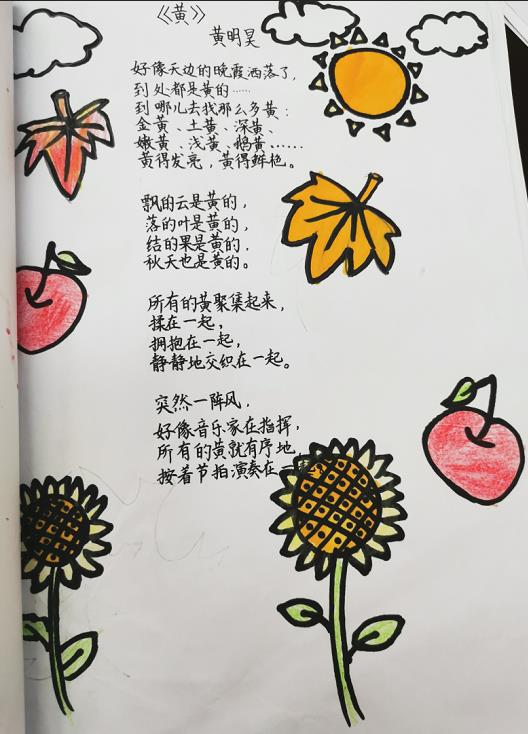 《黄》
黄明昊
好像天边的晚霞洒落了，
到处都是黄的……
到哪儿去找那么多黄：
金黄、土黄、深黄、
嫩黄、浅黄、鹅黄……
黄得发亮，黄得鲜艳。
飘的云是黄的，
落的叶是黄的，
结的果是黄的．
秋天也是黄的。
所有的黄聚集起来，
揉在一起，
拥抱在一起，
静静地交织在一起。
突然一阵风，
好像音乐家在指挥，
所有的黄就有序地，
按着节拍演奏在一